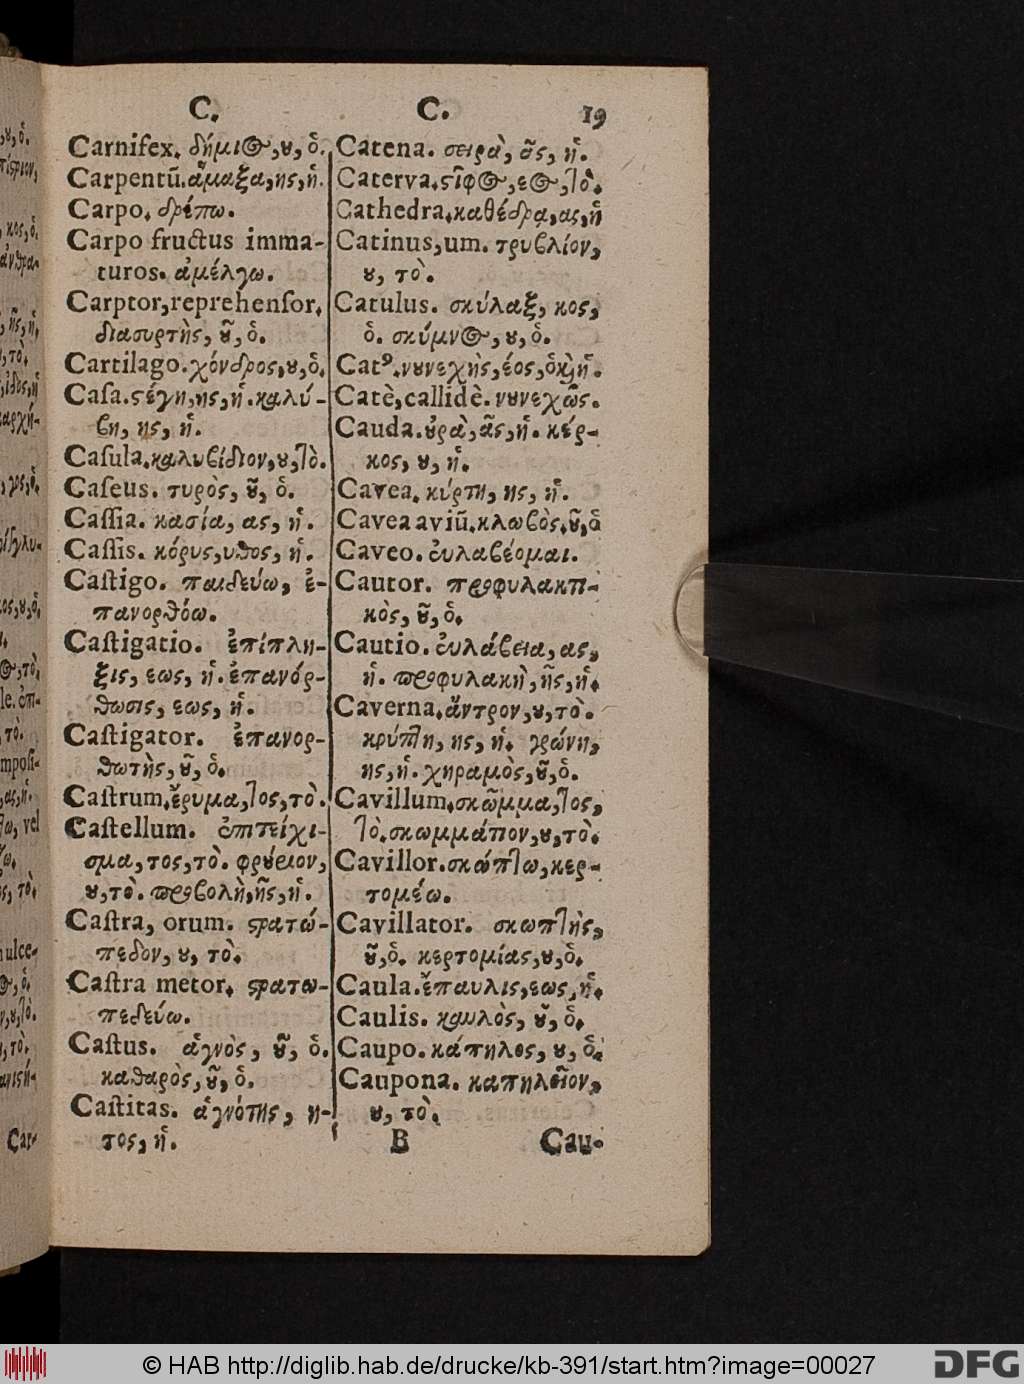 C.
Carnifex. δήμι&, ου, ὁ.
Carpentū. ἅμαξα, ης, ἡ.
Carpo. δρέπω.
Carpo fructus imma-
turos. ἀμέλγω.
Carptor, reprehenſor.
διασυρτὴς, οῦ, ὁ.
Cartilago. χόνδρος, ου, ὁ.
Caſa. ϛέγη, ης, ἡ. καλύ-
βη, ης, ἡ.
Caſula. καλυβίδιον, ου, τὸ.
Caſeus. τυρὸς, οῦ, ὁ.
Caſſia. κασία, ας, ἡ.
Caſſis. κόρυς, υθος, ἡ.
Caſtigo. παιδεύω, ἐ-
πανορθόω.
Caſtigatio. ἐπίπλη-
ξις, εως, ἡ. ἐπανόρ-
θωσις, εως, ἡ.
Caſtigator. ἐπανορ-
θωτὴς, οῦ, ὁ.
Caſtrum. ἔρυμα, τος, τὸ.
Caſtellum. ἐπιτείχι-
σμα, τος, τὸ. φρούριον,
ου, τὸ. προβολὴ, ῆς, ἡ.
Caſtra, orum. ϛρατώ-
πεδον, ου, τὸ.
Caſtra metor. ϛρατω-
πεδεύω.
Caſtus. ἁγνὸς, οῦ, ὁ.
καθαρὸς, οῦ, ὁ.
Caſtitas. ἁγνότης, η-
τος, ἡ.
C. 19
Catena. σειρὰ, ᾶς, ἡ.
Caterva. ϛῖφος, εος, τὸ.
Cathedra. καθέδρα, ας, ἡ
Catinus, um. τρυβλίον,
ου, τὸ.
Catulus. σκύλαξ, κος,
ὁ. σκύμνος, ου, ὁ.
Catꝰ. νουνεχὴς, έος, ὁ κ̀ ἡ.
Catè, callidè. νουνεχῶς.
Cauda. οὐρὰ, ᾶς, ἡ. κέρ-
κος, ου, ἡ.
Cavea. κύρτη, ης, ἡ.
Cavea aviū. κλωβὸς, οῦ, ὁ
Caveo. εὐλαβέομαι.
Cautor. προφυλακτι-
κὸς, οῦ, ὁ.
Cautio. εὐλάβεια, ας,
ἡ. προφυλακὴ, ῆς, ἡ.
Caverna. ἄντρον, ου, τὸ.
κρύπτη, ης, ἡ. γρώνη,
ης, ἡ. χηραμὸς, οῦ, ὁ.
Cavillum. σκῶμμα, τος,
τὸ. σκωμμάτιον, ου, τὸ.
Cavillor. σκώπτω, κερ-
τομέω.
Cavillator. σκωπτὴς,
οῦ, ὁ. κερτομίας, ου, ὁ.
Caula. ἔπαυλις, εως, ἡ.
Caulis. καυλὸς, οῦ, ὁ.
Caupo. κάπηλος, ου, ὁ.
Caupona. καπηλεῖον,
ου, τὸ.
B Cau-
© HAB http://diglib.hab.de/drucke/kb-391/start.htm?image=00027
DFG